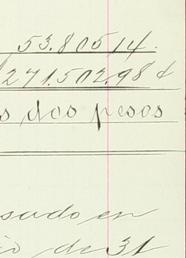 53.805,14.
271.502.98 ¢
s dos pesos
sado en
io de 31